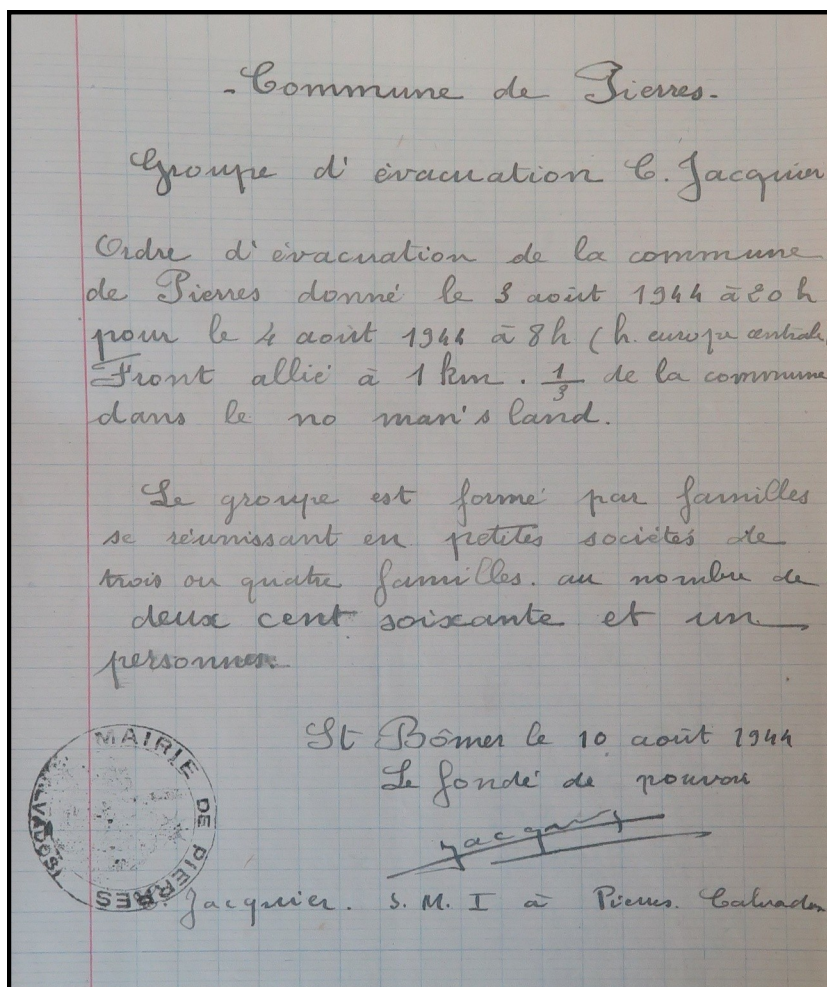 - Commune de Pierres -
Groupe d'évacuation C. Jacquier
Ordre d'évacuation de la commune
de Pierres donné le 3 août 1944 à 20 h
pour le 4 août 1944 à 8h (h. europe centrale
Front allié à 1 km. 1/3 de la commune
dans le no man's land.
Le groupe est formé par familles
se réunissant en petites sociétés de
trois ou quatre familles. au nombre de
deux cent soixante et un
personnes.
St Bômer le 10 août 1944
Le fondé de pouvoir
Jacquier
Jacquier. S. M. I à Pierres. Calvados
MAIRIE DE PIERRES
(CALVADOS)